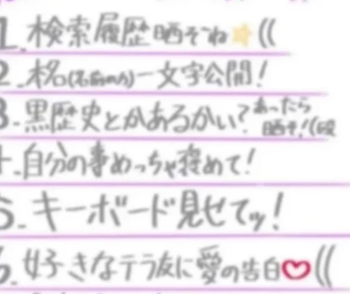 1.検索履歴晒そうね☆((
2.本名(名前のみ)一文字公開!
3.黒歴史とかあるかい?あったら晒そ!(殴
4.自分の事めっちゃ褒めて!
5.キーボード見せてッ!
6.好きなテラ友に愛の告白♡((